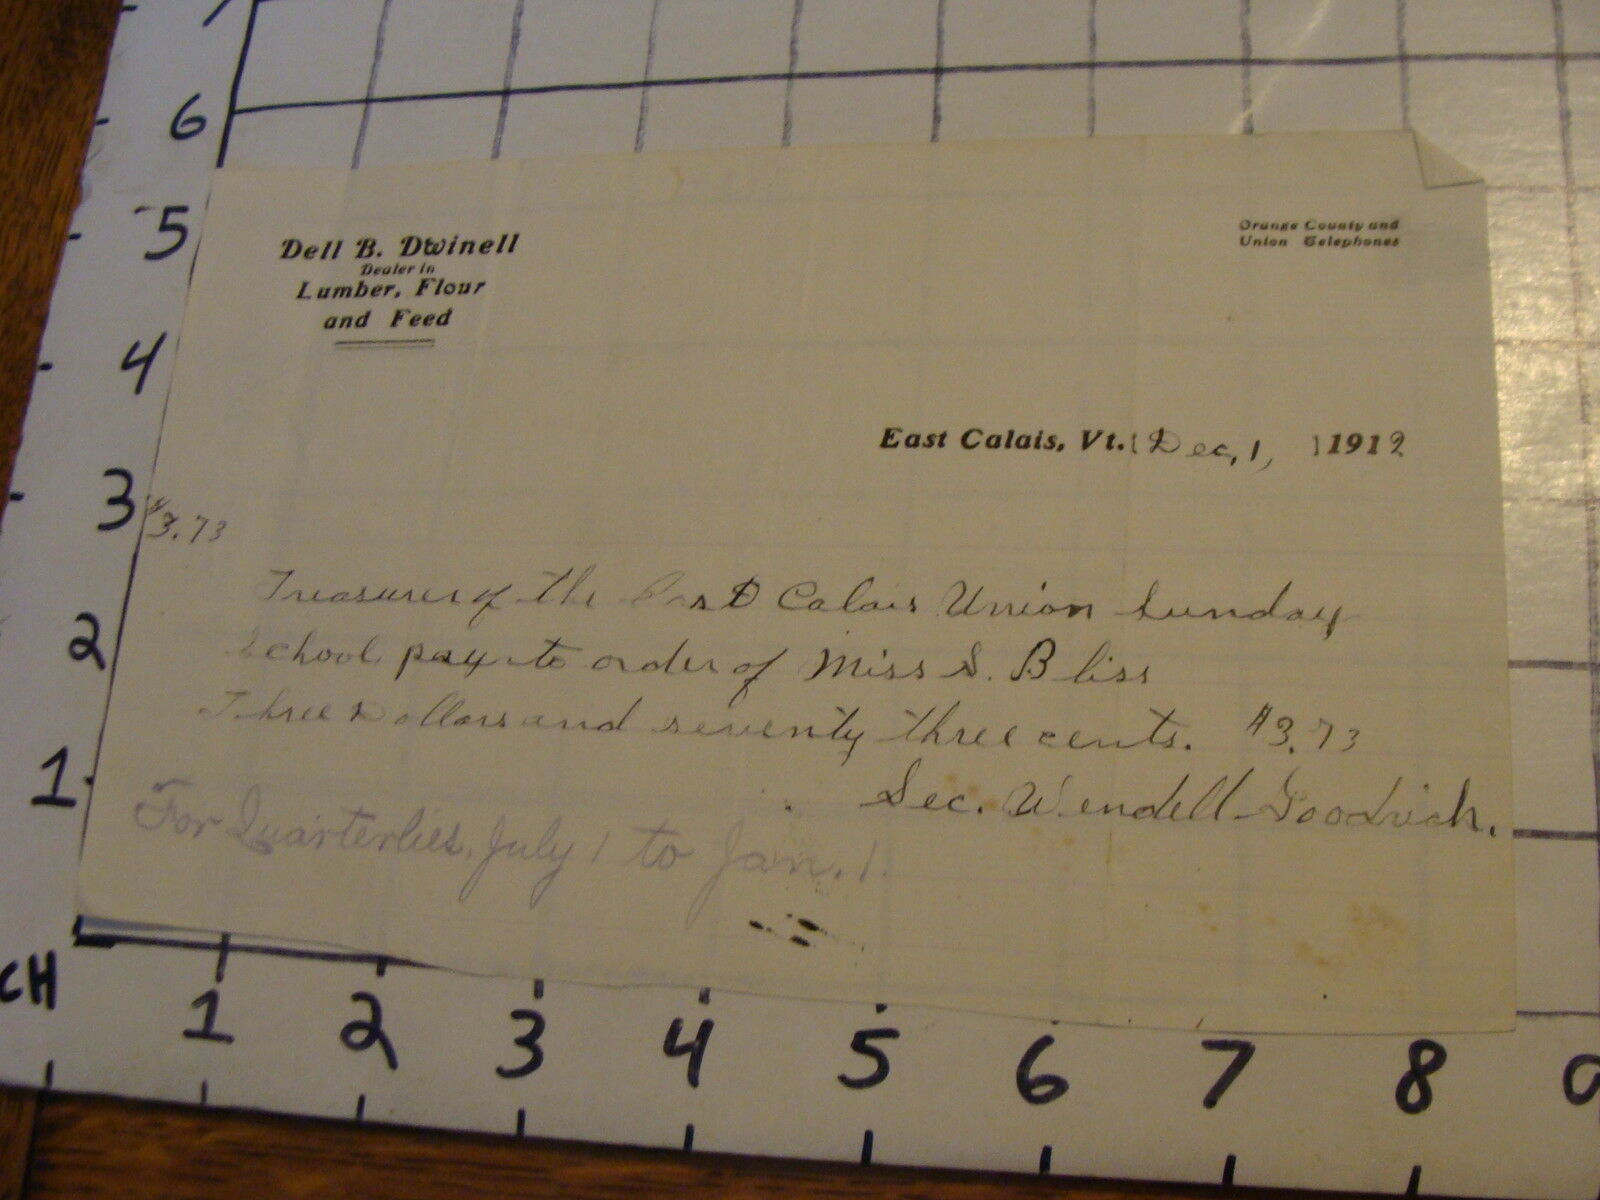 7
6
5
4
3
2
1
Dell B. Dwinell
Dealer in
Lumber, Flour
and Feed
Orange County and
Union Telephones
East Calais, Vt. Dec, 1, 1912
$3.73
Treasurer of the East Calais Union Sunday
School pay to order of Miss S. Bliss
Three Dollars and seventy three cents. $3.73
Sec. Wendell Goodrich.
For Quarterlies, July 1 to Jan. 1.
CH
1 2 3 4 5 6 7 8